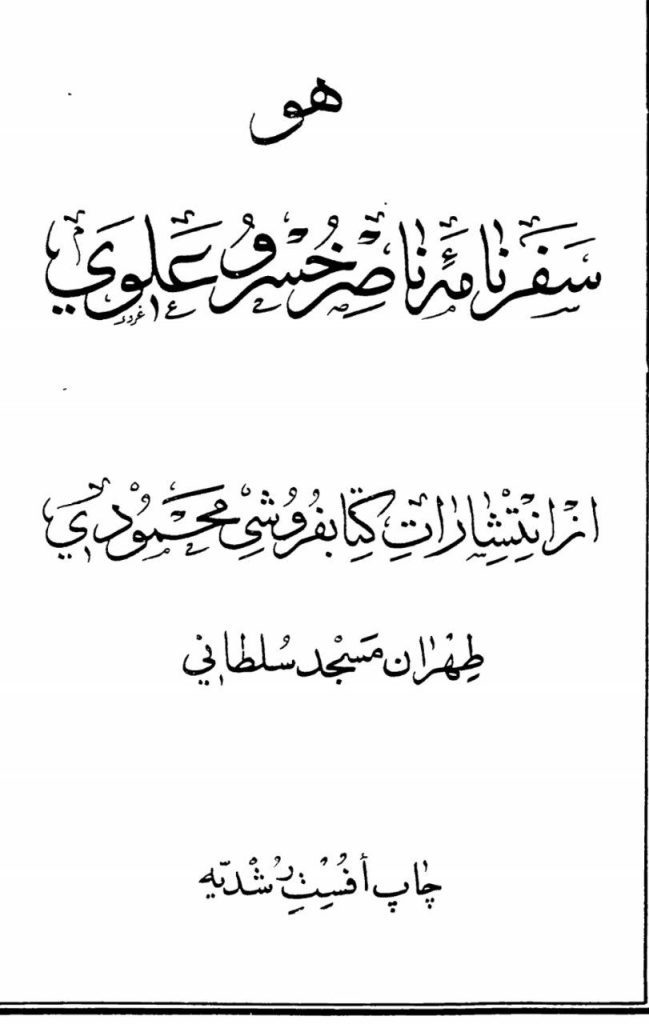 هو
سَفَرنامۀ ناصِر خُسرو عَلَوي
از انتِشاراتِ كِتابفُروُشىِ مَحموُدي
طِهران مَسجد سُلطاني
چاپ أفسُتِ رُشديّه